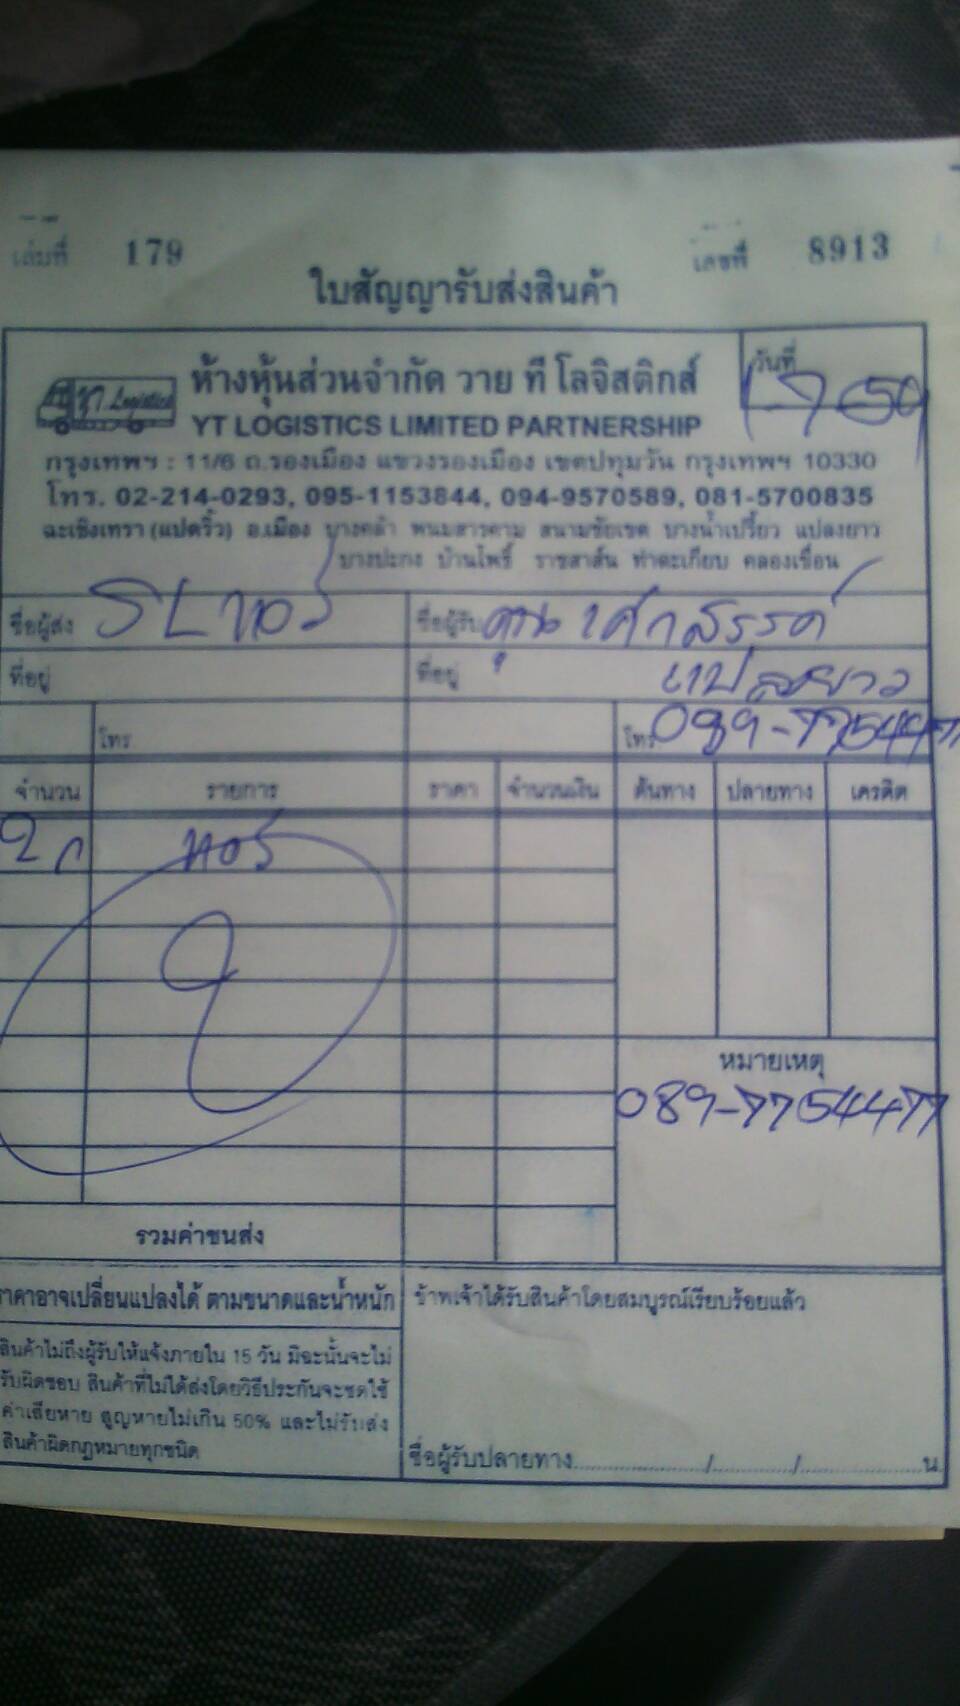 เล่มที่ 179 เลขที่ 8913
ใบสัญญารับส่งสินค้า
ห้างหุ้นส่วนจำกัด วาย ที โลจิสติกส์
วันที่
YT Logistics
YT LOGISTICS LIMITED PARTNERSHIP
กรุงเทพฯ : 11/6 ถ.รองเมือง แขวงรองเมือง เขตปทุมวัน กรุงเทพฯ 10330
โทร. 02-214-0293, 095-1153844, 094-9570589, 081-5700835
ฉะเชิงเทรา (แปดริ้ว) อ.เมือง บางคล้า พนมสารคาม สนามชัยเขต บางน้ำเปรี้ยว แปลงยาว
บางปะกง บ้านโพธิ์ ราชสาส์น ท่าตะเกียบ คลองเขื่อน
ชื่อผู้ส่ง ชื่อผู้รับ คุณ
ที่อยู่ ที่อยู่ แปลงยาว
โทร โทร 089-7754477
จำนวน รายการ ราคา จำนวนเงิน ต้นทาง ปลายทาง เครดิต
หมายเหตุ
089-7754477
รวมค่าขนส่ง
ราคาอาจเปลี่ยนแปลงได้ ตามขนาดและน้ำหนัก
สินค้าไม่ถึงผู้รับให้แจ้งภายใน 15 วัน มิฉะนั้นจะไม่
รับผิดชอบ สินค้าที่ไม่ได้ส่งโดยวิธีประกันจะชดใช้
ค่าเสียหาย สูญหายไม่เกิน 50% และไม่รับส่ง
สินค้าผิดกฎหมายทุกชนิด
ข้าพเจ้าได้รับสินค้าโดยสมบูรณ์เรียบร้อยแล้ว
ชื่อผู้รับปลายทาง..................../............/..................น.